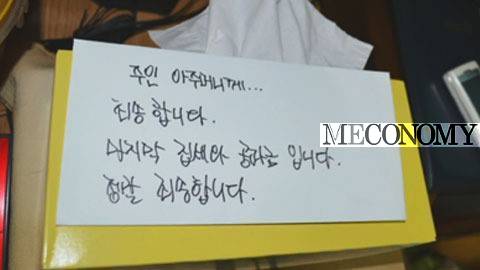 주인 아주머니께...
죄송합니다.
마지막 집세와 공과금 입니다.
정말 죄송합니다.
MECONOMY